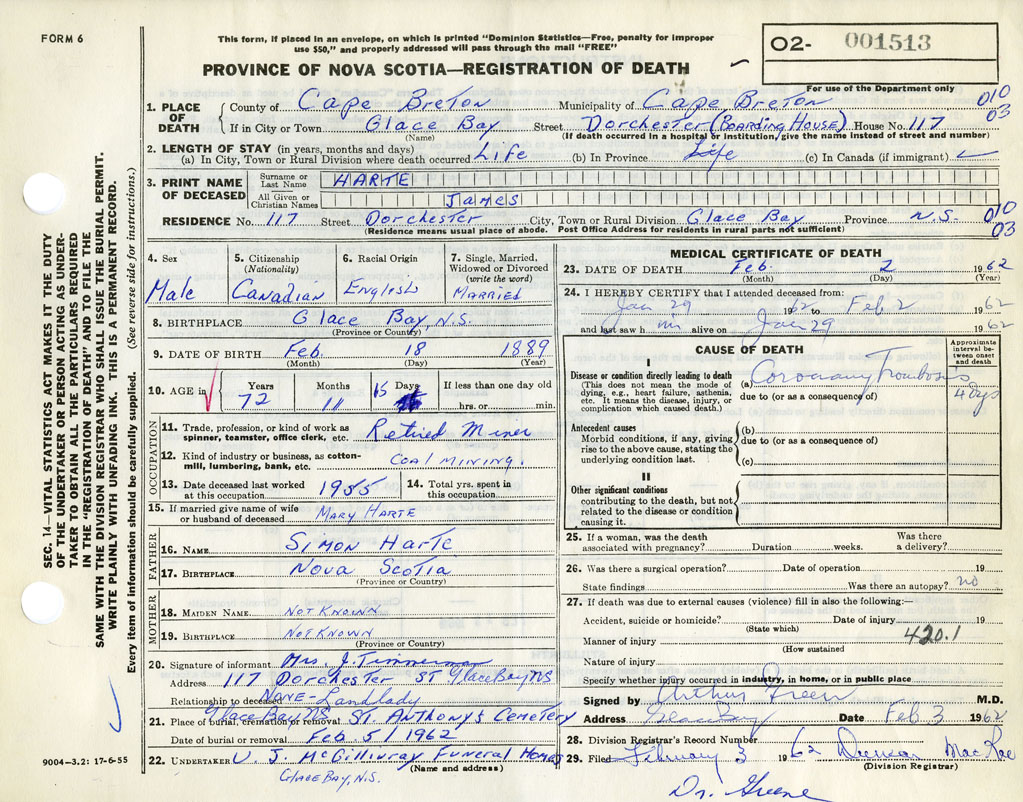 FORM 6
This form, if placed in an envelope, on which is printed "Dominion Statistics—Free, penalty for improper
use $50," and properly addressed will pass through the mail "FREE"
PROVINCE OF NOVA SCOTIA—REGISTRATION OF DEATH
O2- 001513
For use of the Department only
SEC. 14—VITAL STATISTICS ACT MAKES IT THE DUTY
OF THE UNDERTAKER OR PERSON ACTING AS UNDER-
TAKER TO OBTAIN ALL THE PARTICULARS REQUIRED
IN THE "REGISTRATION OF DEATH" AND TO FILE THE
SAME WITH THE DIVISION REGISTRAR WHO SHALL ISSUE THE BURIAL PERMIT.
WRITE PLAINLY WITH UNFADING INK. THIS IS A PERMANENT RECORD.
Every item of information should be carefully supplied. (See reverse side for instructions.)
1. PLACE OF DEATH County of Cape Breton Municipality of Cape Breton 010
If in City or Town Glace Bay Street Dorchester (Boarding House) House No. 117 03
(Name) (If death occurred in a hospital or institution, give the name instead of street and number)
2. LENGTH OF STAY (in years, months and days)
(a) In City, Town or Rural Division where death occurred Life (b) In Province Life (c) In Canada (if immigrant)
3. PRINT NAME OF DECEASED Surname or Last Name HARTE
All Given or Christian Names JAMES
RESIDENCE No. 117 Street Dorchester City, Town or Rural Division Glace Bay Province N.S. 010
(Residence means usual place of abode. Post Office Address for residents in rural parts not sufficient) 03
4. Sex 5. Citizenship (Nationality) 6. Racial Origin 7. Single, Married, Widowed or Divorced (write the word)
Male Canadian English Married
8. BIRTHPLACE Glace Bay, N.S.
(Province or Country)
9. DATE OF BIRTH Feb. 18 1889
(Month) (Day) (Year)
10. AGE in Years Months Days If less than one day old
72 11 15 hrs. or min.
OCCUPATION
11. Trade, profession, or kind of work as
spinner, teamster, office clerk, etc. Retired Miner
12. Kind of industry or business, as cotton-
mill, lumbering, bank, etc. Coal Mining.
13. Date deceased last worked at this occupation 1955 14. Total yrs. spent in this occupation
15. If married give name of wife
or husband of deceased Mary Harte
FATHER
16. NAME Simon Harte
17. BIRTHPLACE Nova Scotia
(Province or Country)
MOTHER
18. MAIDEN NAME Not Known
19. BIRTHPLACE Not Known
(Province or Country)
20. Signature of informant Mrs. J. Timmerman
Address 117 Dorchester St Glace Bay NS
Relationship to deceased None - Landlady
21. Place of burial, cremation or removal Glace Bay NS St. Anthony's Cemetery
Date of burial or removal Feb. 5/1962
22. UNDERTAKER V. J. McGillivray Funeral Home
(Name and address)
Glace Bay, N.S.
9004-3.2: 17-6-55
MEDICAL CERTIFICATE OF DEATH
23. DATE OF DEATH Feb 2 1962
(Month) (Day) (Year)
24. I HEREBY CERTIFY that I attended deceased from:
Jan 29 1962 to Feb 2 1962
and last saw him alive on Jan 29 1962
CAUSE OF DEATH
Approximate interval between onset and death
I
Disease or condition directly leading to death (a) Coronary Trombosis 4 days
(This does not mean the mode of dying, e.g., heart failure, asthenia, etc. It means the disease, injury, or complication which caused death.) due to (or as a consequence of)
Antecedent causes (b)
Morbid conditions, if any, giving rise to the above cause, stating the underlying condition last. due to (or as a consequence of)
(c)
II
Other significant conditions
contributing to the death, but not related to the disease or condition causing it.
25. If a woman, was the death associated with pregnancy? Duration weeks. Was there a delivery?
26. Was there a surgical operation? Date of operation 19
State findings Was there an autopsy? no
27. If death was due to external causes (violence) fill in also the following:—
Accident, suicide or homicide? Date of injury 19
(State which)
Manner of injury 420.1
(How sustained
Nature of injury
Specify whether injury occurred in industry, in home, or in public place
Signed by Arthur Green M.D.
Address Glace Bay Date Feb 3 1962
28. Division Registrar's Record Number
29. Filed February 3 1962 Duncan MacRae
(Division Registrar)
Dr. Greene